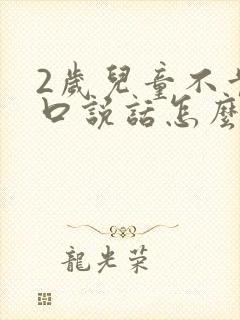 2歲兒童不
口說話怎麼
龍光荣